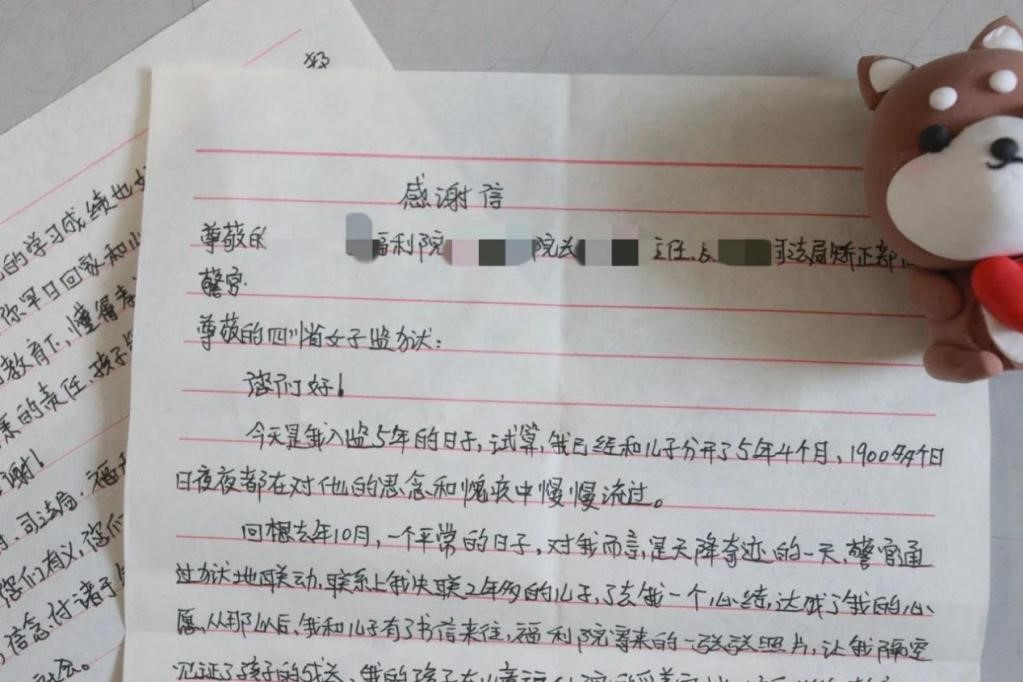 感谢信
尊敬的 福利院 院长 主任、 司法局矫正部
警官.
尊敬的四川省女子监狱:
您们好!
今天是我入监5年的日子,试算,我已经和儿子分开了5年4个月、1900多个日
日夜夜都在对他的思念和愧疚中慢慢流过。
回想去年10月,一个平常的日子,对我而言,是天降奇迹的一天,警官通
过狱地联动,联系上我失联2年多的儿子,了去我一个心结,达成了我的心
愿,从那以后,我和儿子有了书信来往,福利院寄来的一张张照片,让我隔空
见证了孩子的成长,我的孩子在
的学习成绩也
你早日回家和
教育下,懂得孝
的责任.孩子
谢!
司法局.福
您们有义,您们
信念,付诸于